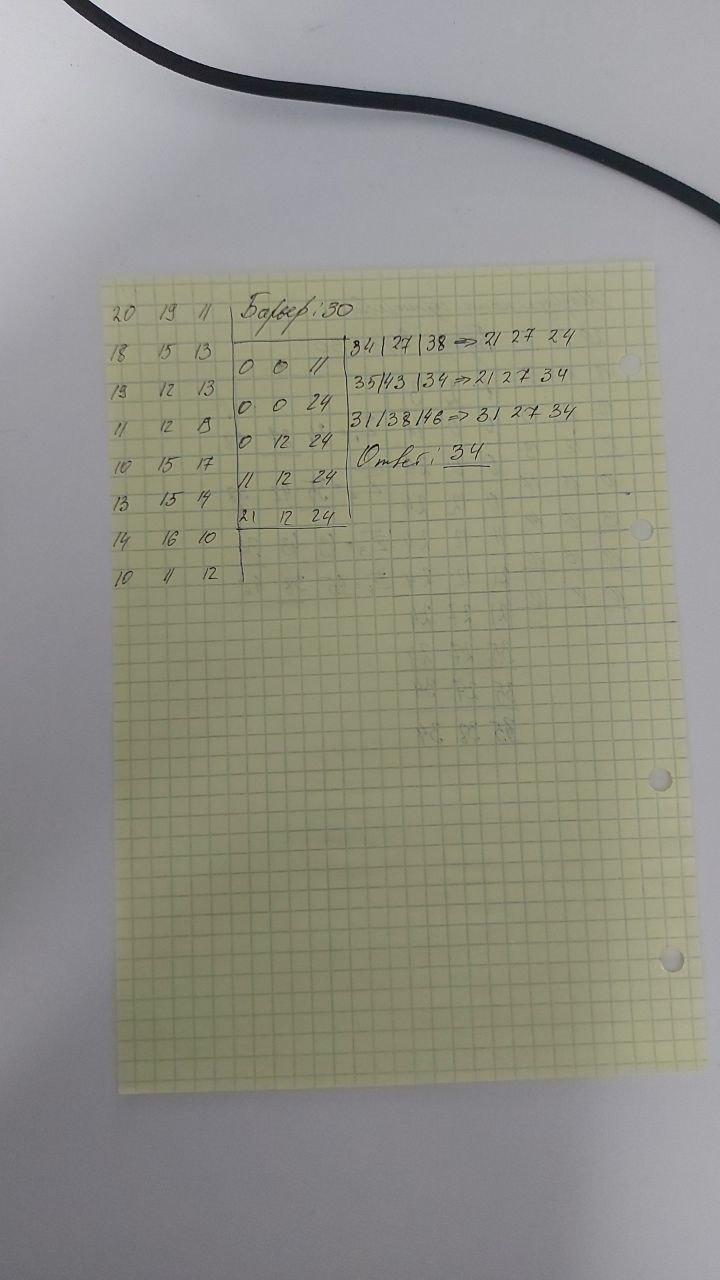 20 19 11
18 15 13
19 12 13
11 12 13
10 15 17
13 15 14
14 16 10
10 11 12
Барьер: 30
0 0 11
0 0 24
0 12 24
11 12 24
21 12 24
34 | 27 | 38 => 21 27 24
35 | 43 | 34 => 21 27 34
31 | 38 | 46 => 31 27 34
Ответ: 34